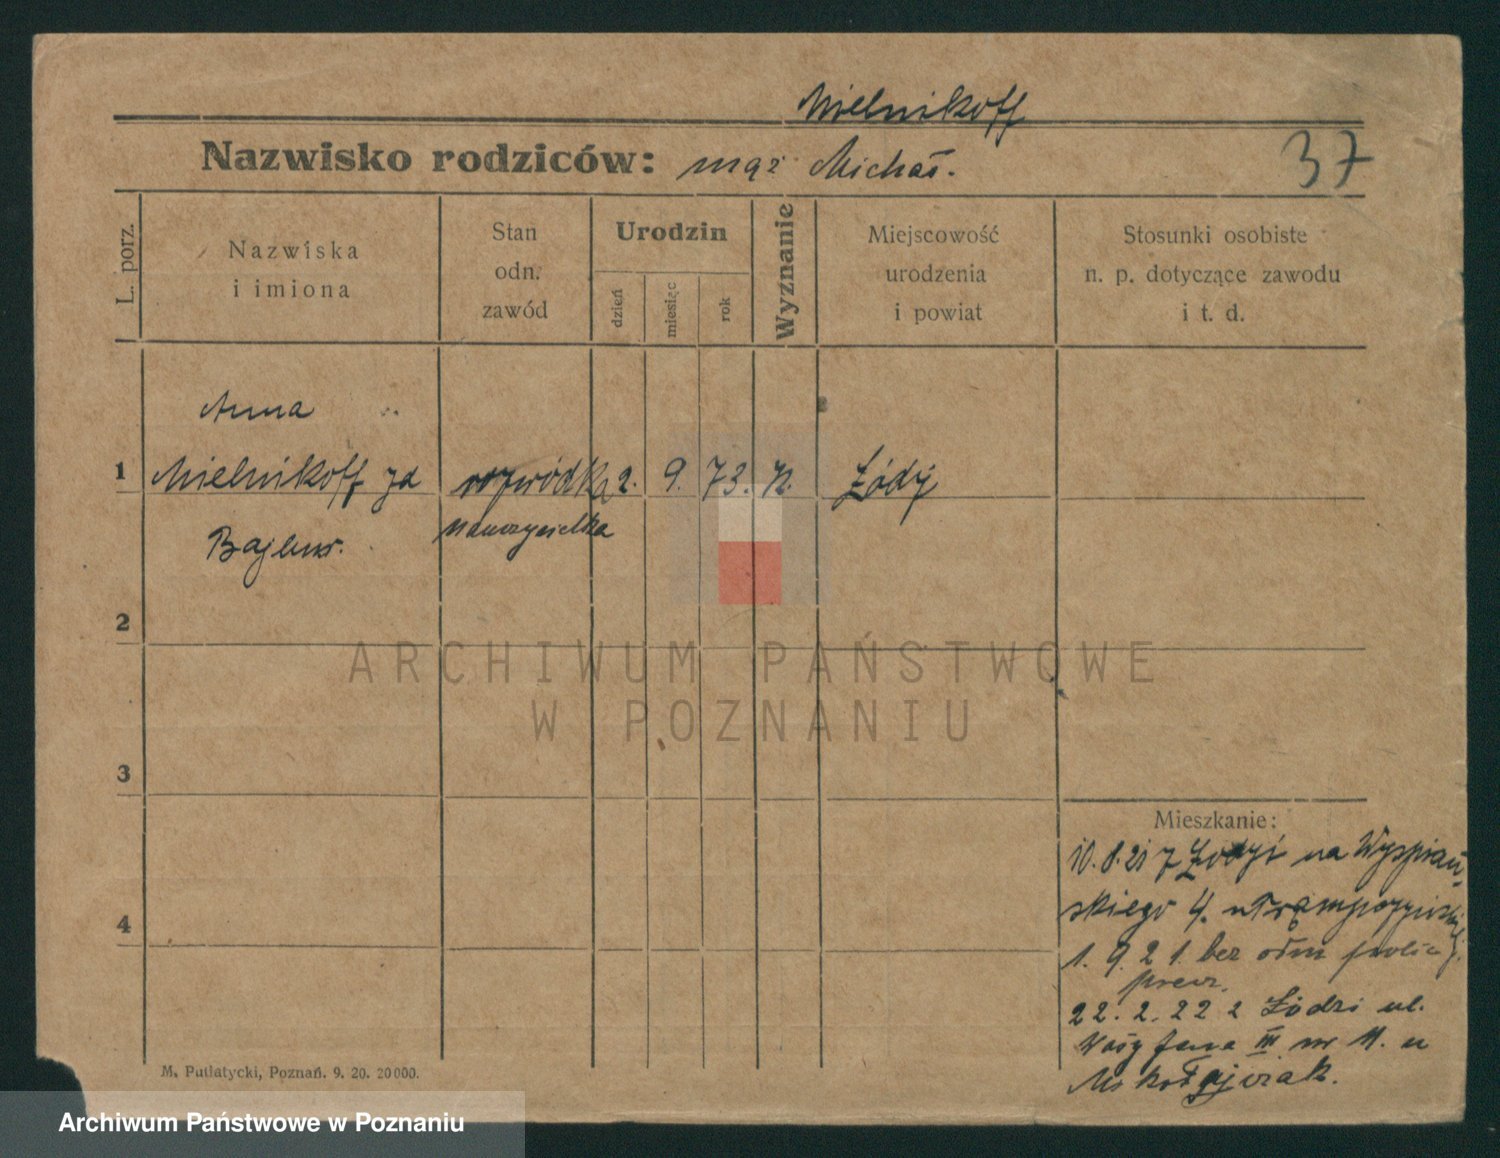 Mielnikoff
Nazwisko rodziców: mąż Michał.
37
L. porz.
Nazwiska
i imiona
Stan
odn.
zawód
Urodzin
dzień
miesiąc
rok
Wyznanie
Miejscowość
urodzenia
i powiat
Stosunki osobiste
n. p. dotyczące zawodu
i t. d.
Anna
1 Mielnikoff rozwódka 2. 9. 73. Łódź
nauczycielka
2
3
4
ARCHIWUM PAŃSTWOWE
W POZNANIU
Mieszkanie:
10.8.21 z Łodzi na Wyspiań-
skiego 4. u
1. 9. 21. bez odm
22. 2. 22 z Łodzi ul.
Jana III nr 11. u
Mikołajczak.
M. Putiatycki, Poznań. 9. 20. 20000.
Archiwum Państwowe w Poznaniu